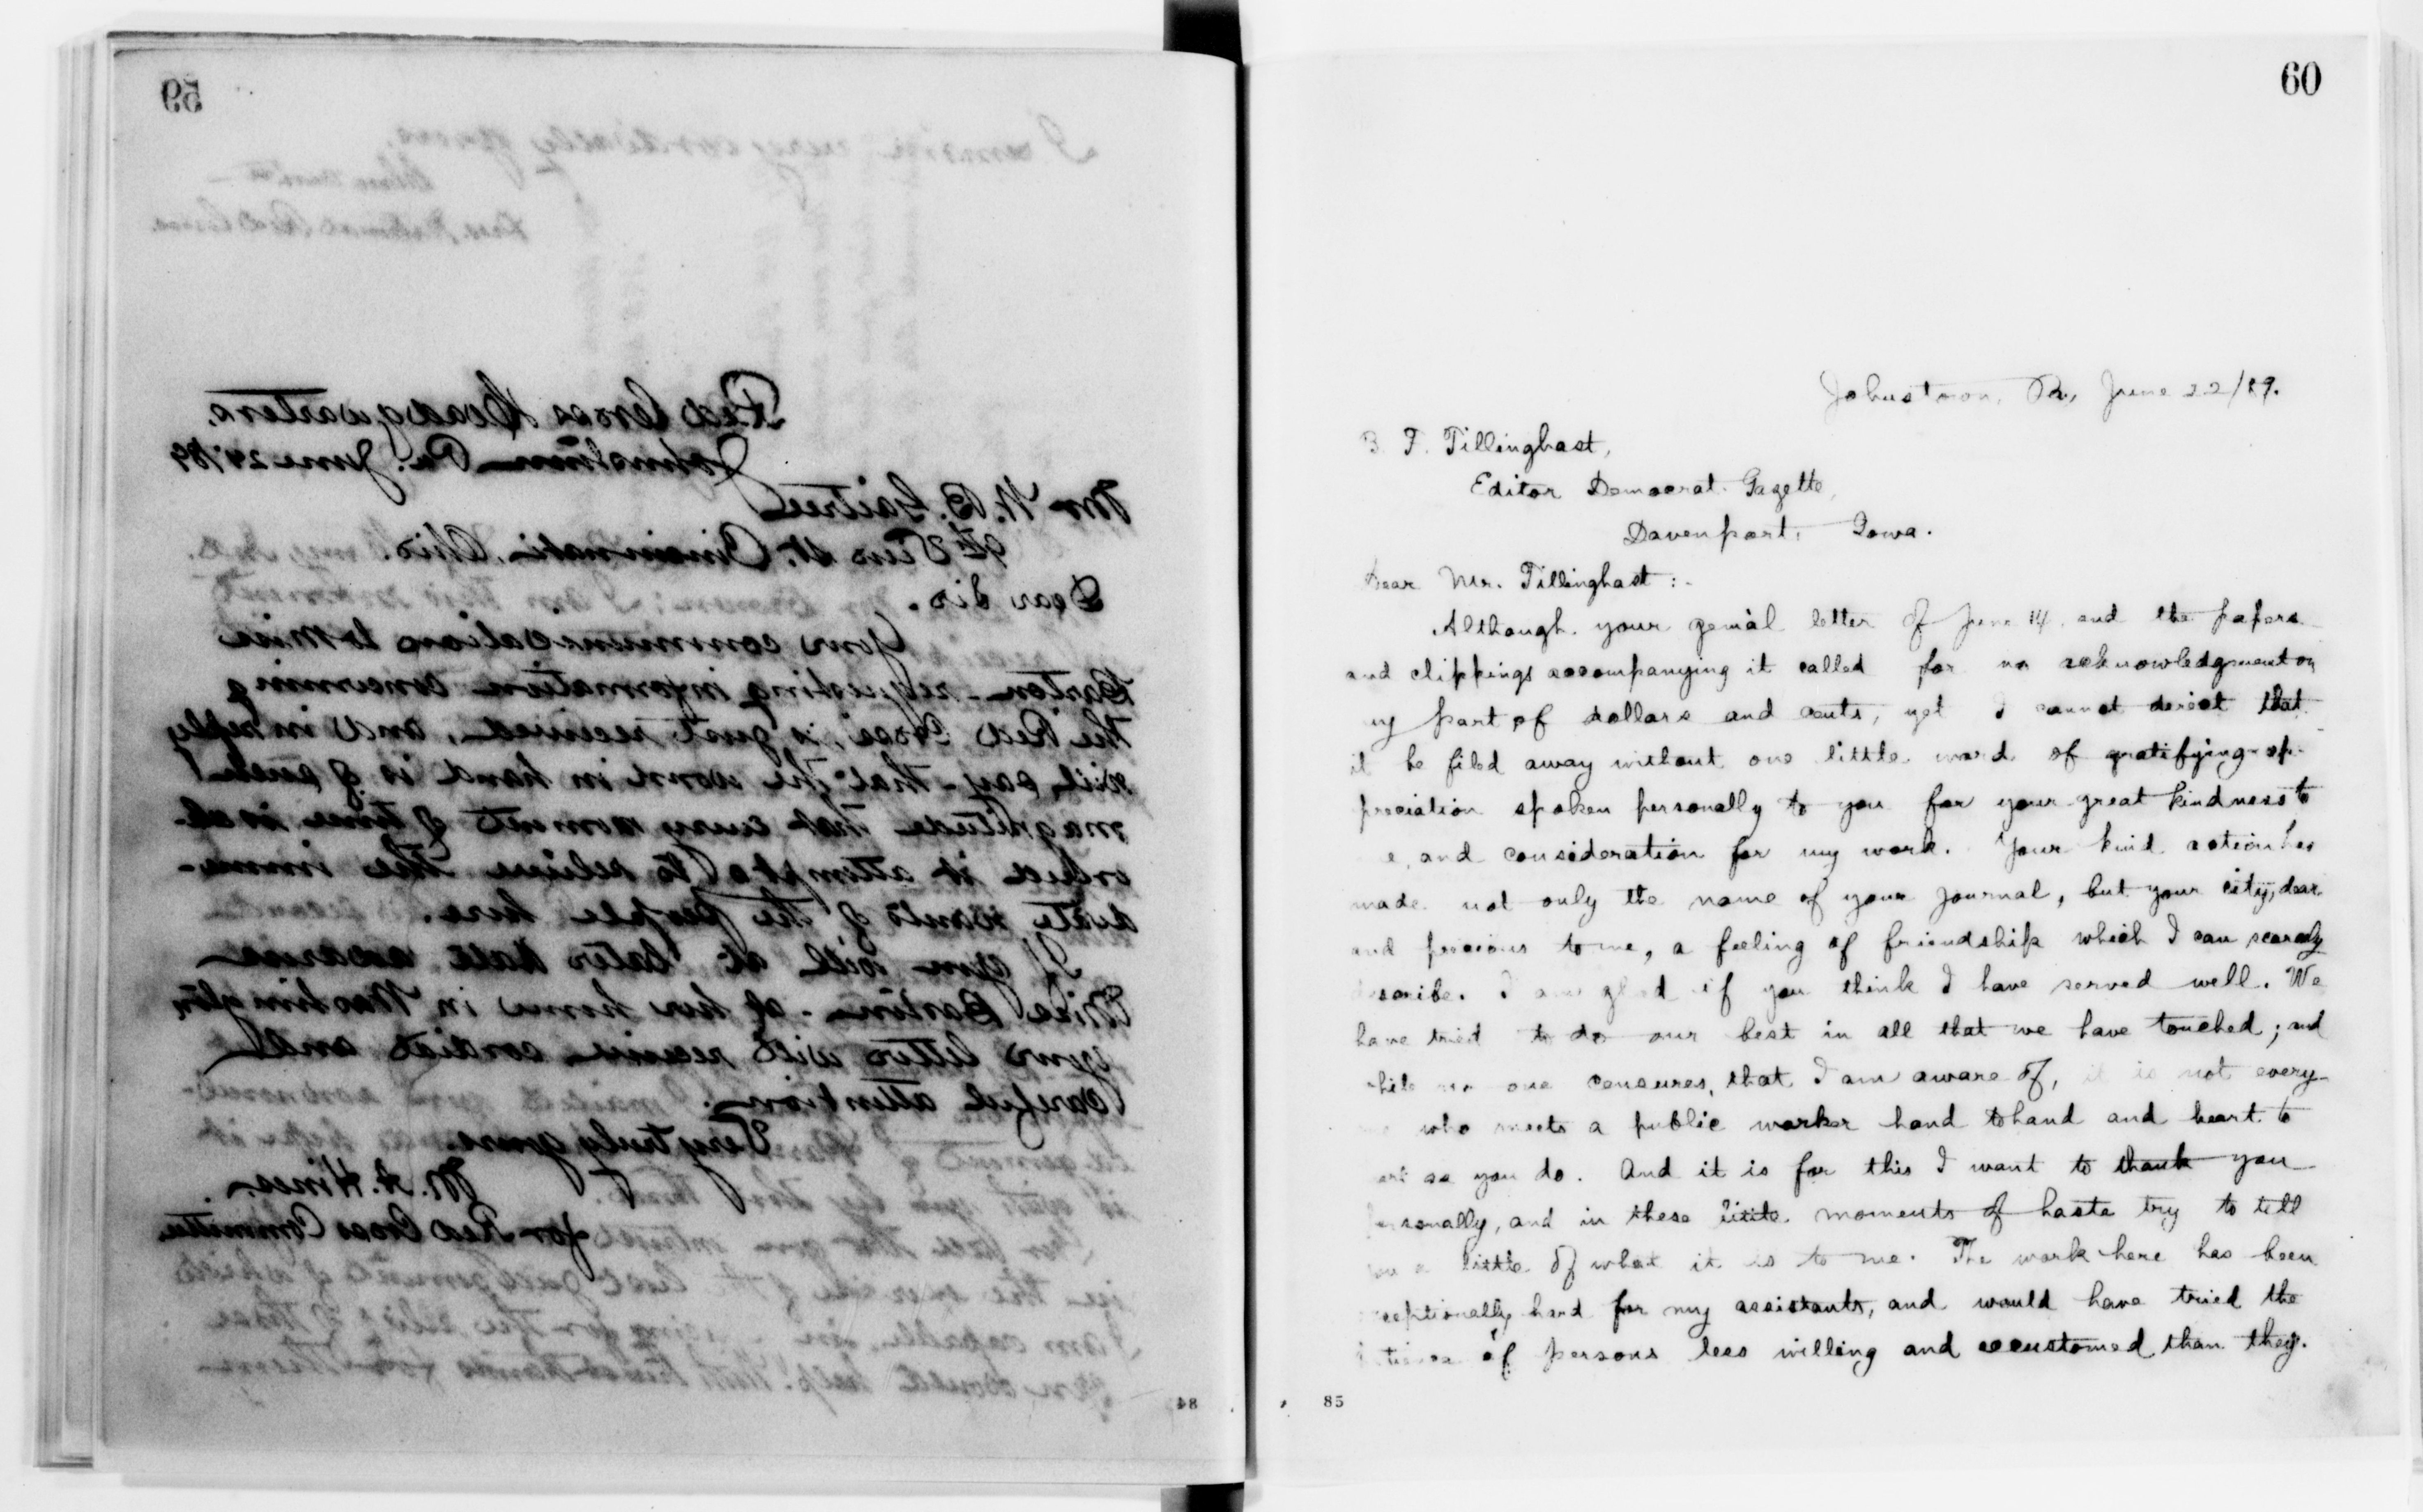 59
Red Cross Headquarters.
Johnstown Pa. June 24 '89
Mr N. B. Gaitree
9th Vine St. Cincinnati, Ohio.
Dear Sir.
Your communication to Miss
Barton - requesting information concerning
the Red Cross, is just received, and in reply
will say - that the work in hand is of such
magnitude that every moment of time is
it attempts to relieve the imme-
diate wants of the people here.
If you will at later date address
Miss Barton - at her home in Washington
your letter will receive cordial and
careful attention.
Very truly yours
M. A. Hines.
for Red Cross Committee.
84
60
Johnstown, Pa, June 22/89.
B. F. Tillinghast,
Editor Democrat Gazette,
Davenport, Iowa.
Dear Mr. Tillinghast :-
Although your genial letter of June 14, and the papers
and clippings accompanying it called for no acknowledgment on
my part of dollars and cents, yet I cannot that
it be filed away without one little word of gratifying ap-
preciation spoken personally to you for your great kindness to
me, and consideration for my work. Your kind action has
made not only the name of your journal, but your city, dear
and precious to me, a feeling of friendship which I can scarcely
describe. I am glad if you think I have served well. We
have tried to do our best in all that we have touched; and
while no one censures, that I am aware of, it is not every-
one who meets a public worker hand to hand and heart to
heart as you do. And it is for this I want to thank you
personally, and in these little moments of haste try to tell
you a little of what it is to me. The work here has been
exceptionally hard for my assistants, and would have tried the
patience of persons less willing and accustomed than they.
85